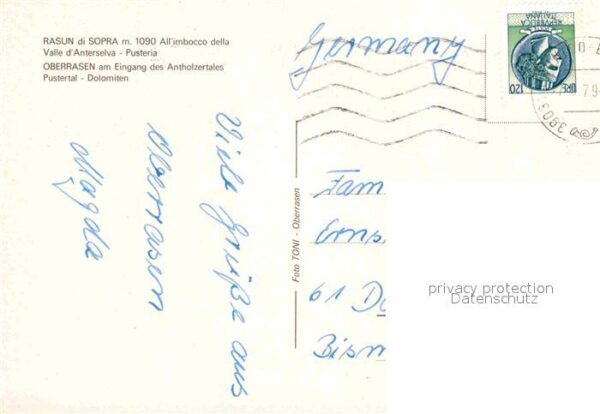 RASUN di SOPRA m. 1090 All'imbocco della
Valle d'Anterselva - Pusteria
OBERRASEN am Eingang des Antholzertales
Pustertal - Dolomiten
Viele Grüße aus
Oberrasen
Magda
Foto TONI - Oberrasen
Germany
REPUBBLICA
ITALIANA
LIRE 120
Fam
Erns
61 Da
Bism
privacy protection
Datenschutz